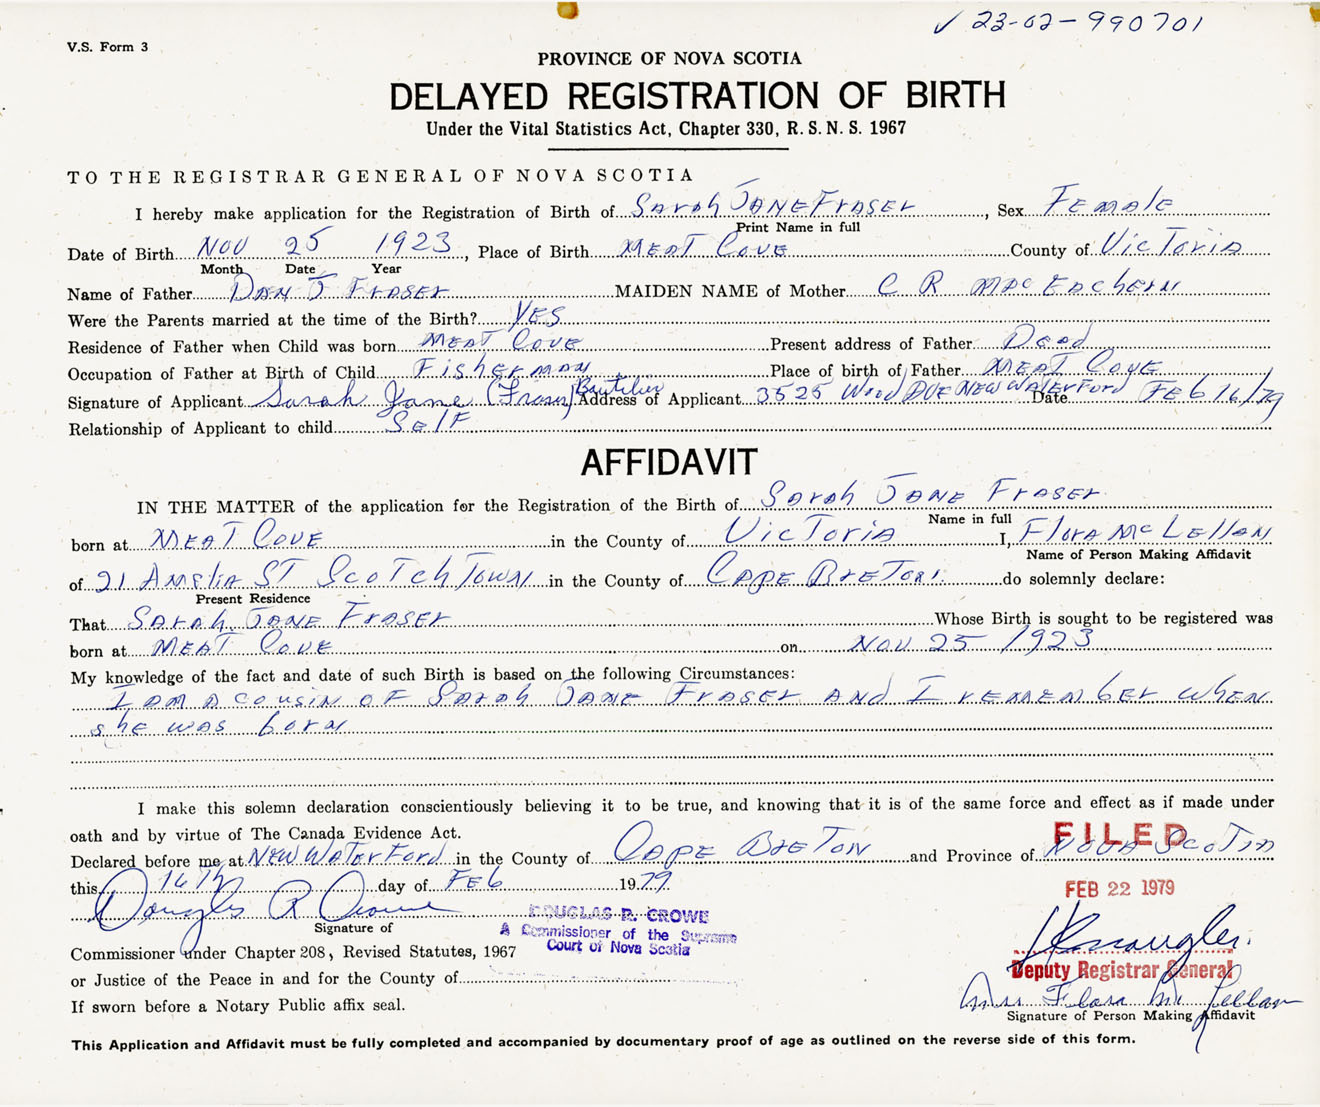 ✓ 23-02-990701
V.S. Form 3
PROVINCE OF NOVA SCOTIA
DELAYED REGISTRATION OF BIRTH
Under the Vital Statistics Act, Chapter 330, R.S.N.S. 1967
TO THE REGISTRAR GENERAL OF NOVA SCOTIA
I hereby make application for the Registration of Birth of Sarah Jane Fraser, Sex Female
Print Name in full
Date of Birth Nov 25 1923, Place of Birth Meat Cove County of Victoria
Month Date Year
Name of Father Dan J Fraser MAIDEN NAME of Mother C R MacEachern
Were the Parents married at the time of the Birth? Yes
Residence of Father when Child was born Meat Cove Present address of Father Dead
Occupation of Father at Birth of Child Fisherman Place of birth of Father Meat Cove
Signature of Applicant Sarah Jane (Fraser) Boutilier Address of Applicant 3525 Wood Ave New Waterford Date Feb 16/79
Relationship of Applicant to child Self
AFFIDAVIT
IN THE MATTER of the application for the Registration of the Birth of Sarah Jane Fraser
Name in full
born at Meat Cove in the County of Victoria I, Flora McLellan
Name of Person Making Affidavit
of 21 Amelia St Scotchtown in the County of Cape Breton do solemnly declare:
Present Residence
That Sarah Jane Fraser Whose Birth is sought to be registered was
born at Meat Cove on Nov 25 1923
My knowledge of the fact and date of such Birth is based on the following Circumstances:
I am a cousin of Sarah Jane Fraser and I remember when
she was born
I make this solemn declaration conscientiously believing it to be true, and knowing that it is of the same force and effect as if made under
oath and by virtue of The Canada Evidence Act.
FILED
Declared before me at New Waterford in the County of Cape Breton and Province of Nova Scotia
this 16th day of Feb 1979
FEB 22 1979
Douglas R Crowe
Signature of
DOUGLAS R. CROWE
A Commissioner of the Supreme
Court of Nova Scotia
Commissioner under Chapter 208, Revised Statutes, 1967
Deputy Registrar General
or Justice of the Peace in and for the County of
Mrs Flora McLellan
Signature of Person Making Affidavit
If sworn before a Notary Public affix seal.
This Application and Affidavit must be fully completed and accompanied by documentary proof of age as outlined on the reverse side of this form.